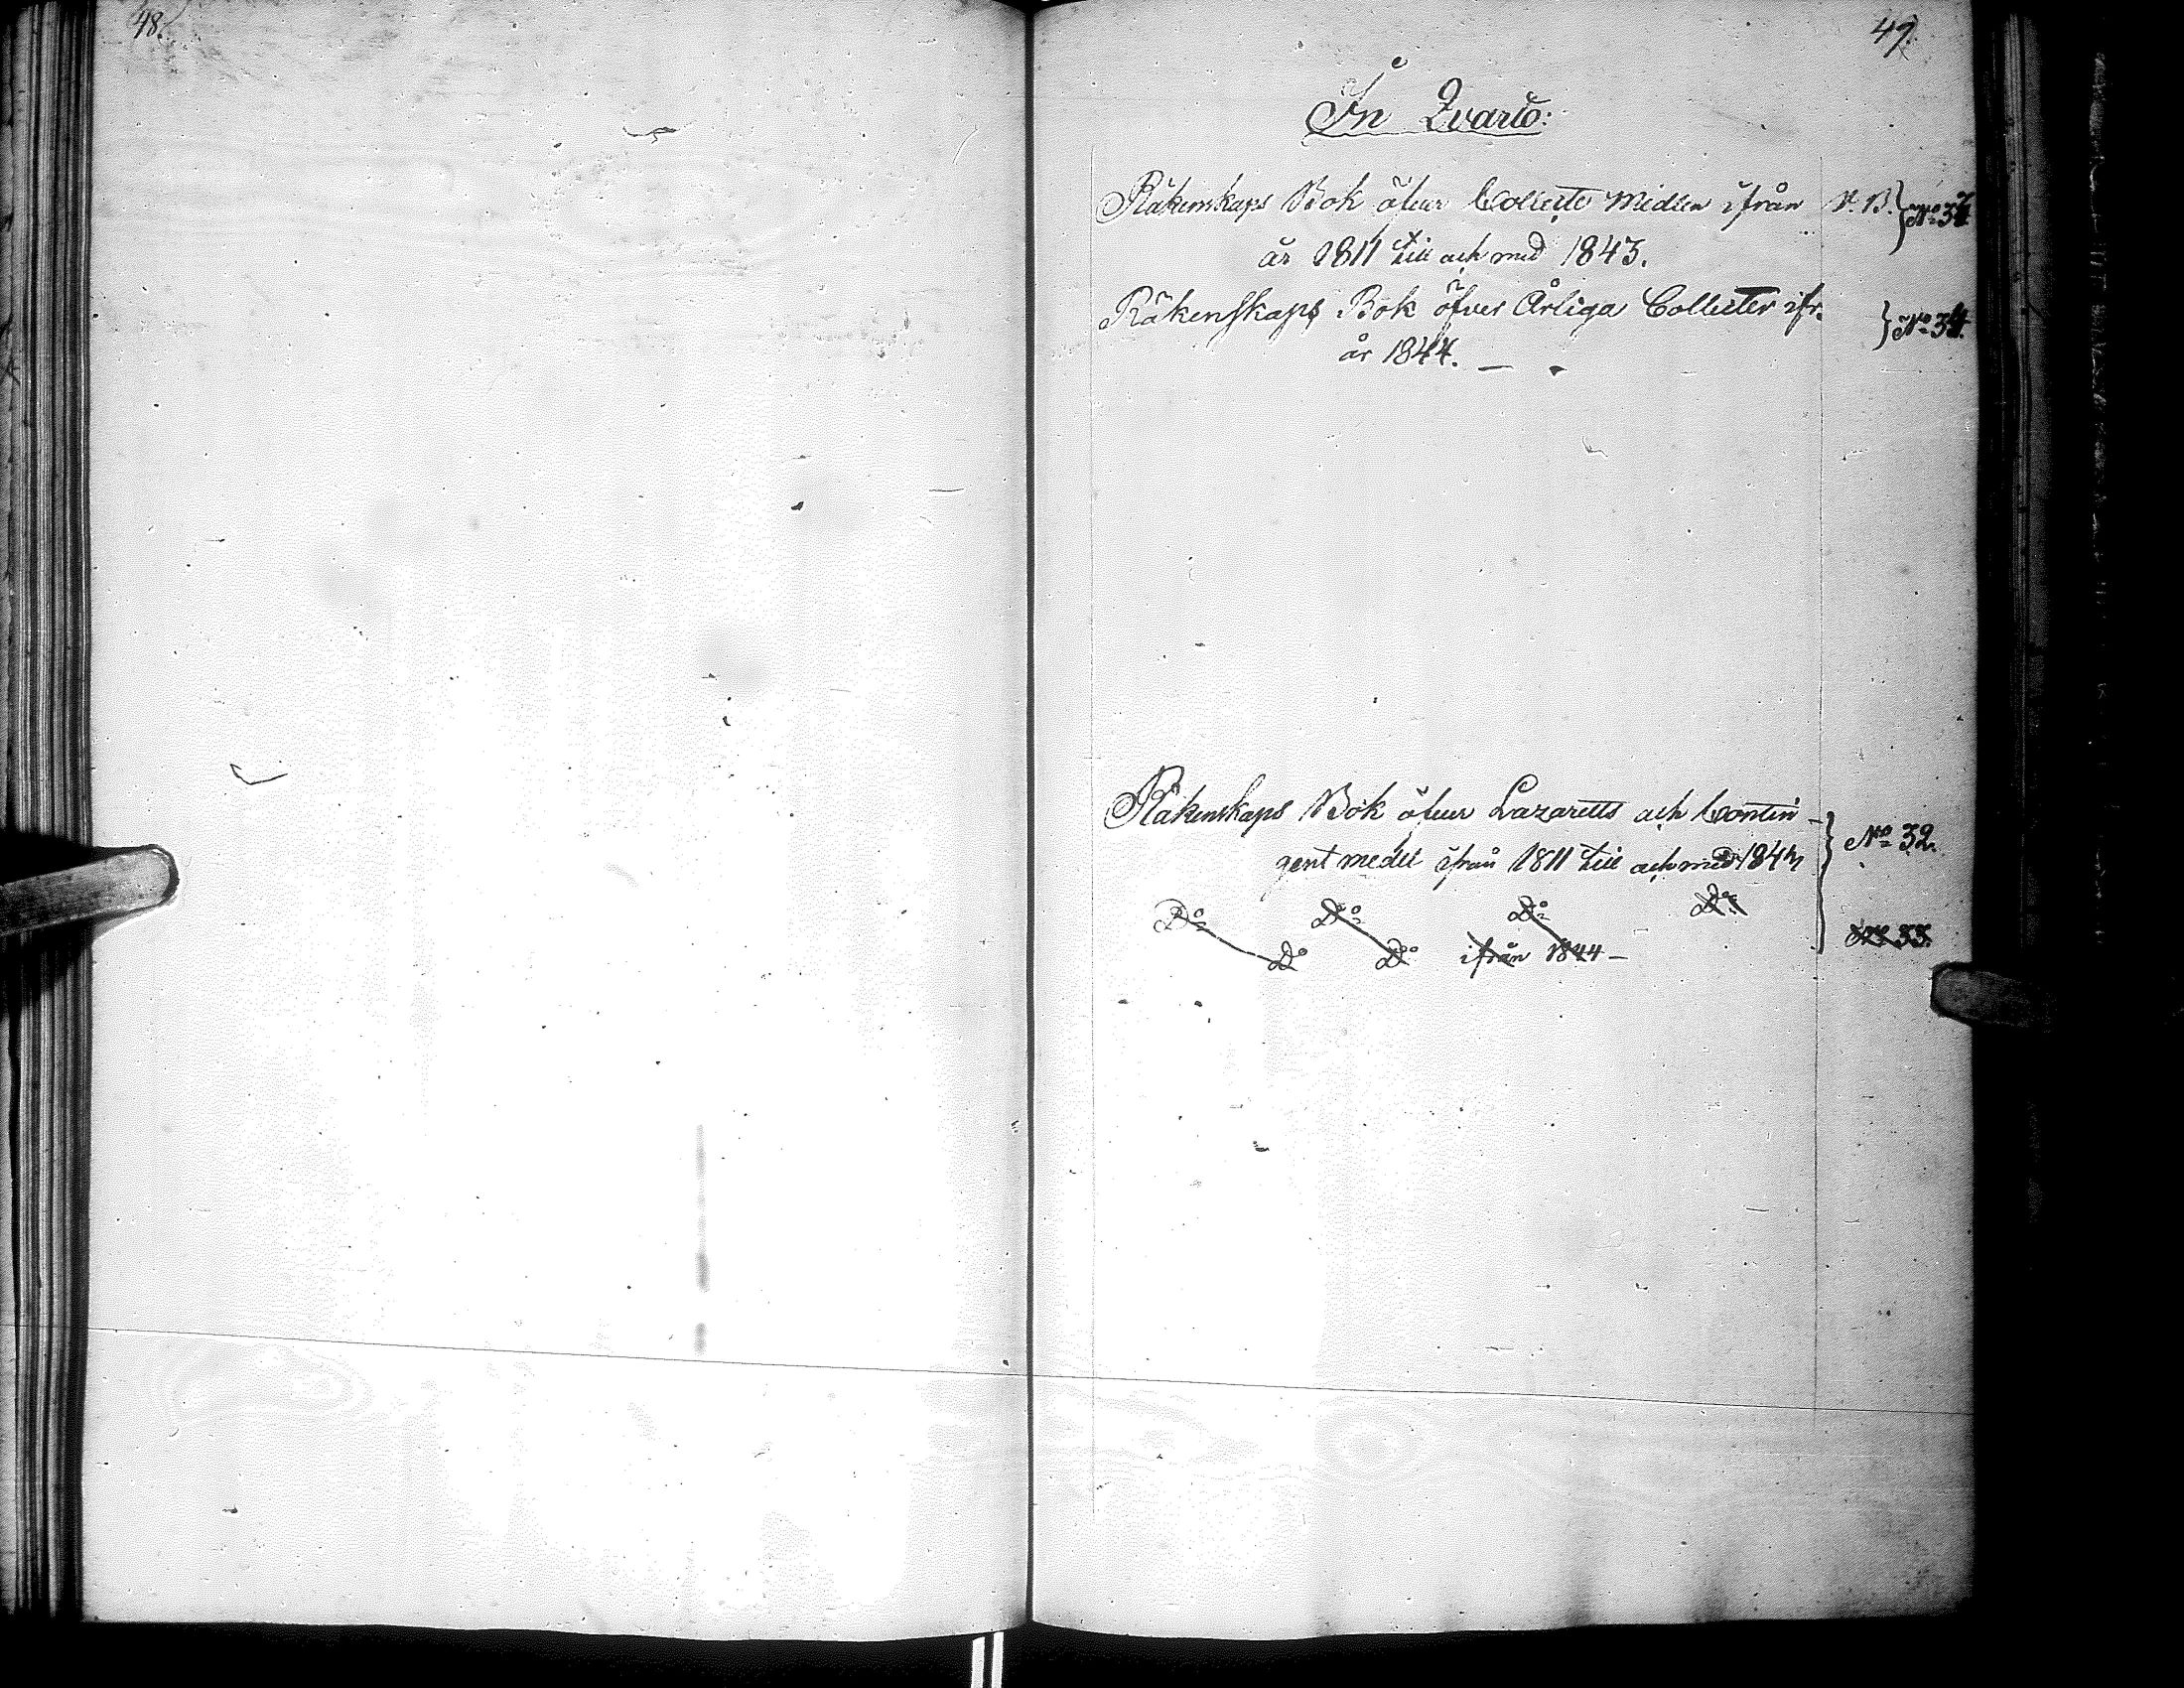 48.
49.
In Qvarto:
Räkenskaps Bok öfver Collecte Medlen ifrån N. B.
år 1811 till och med 1843.
Räkenskaps Bok öfver Årliga Collecter ifr. N:o 34.
år 1844. —
Räkenskaps Bok öfver Lazaretts och Contin- N:o 32.
gent medel ifrån 1811 till och med
D:o D:o D:o D:o N:o 33.
D:o D:o ifrån 1844 —